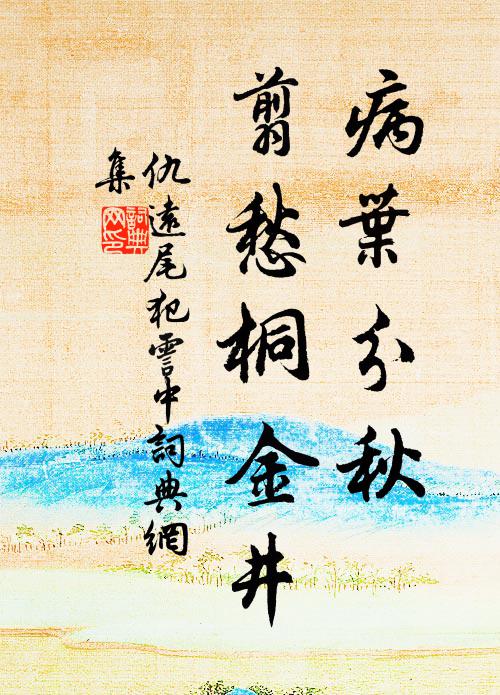 病葉分秋
翦愁桐金井
仇遠尾犯霅中詞典網
集
詞典網印